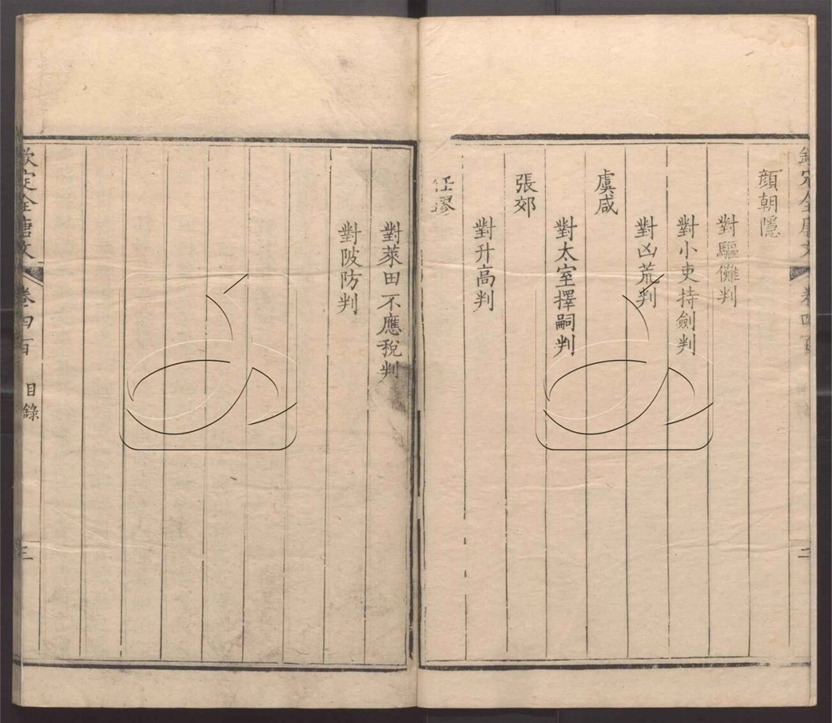 顏朝隱
對驅儺判
對小吏持劍判
對凶荒判
虞咸
對太室擇嗣判
張郊
對升高判
任瑬
對萊田不應稅判
對陂防判
欽定全唐文
卷四百 目錄
三
欽定全唐文
卷四百
二